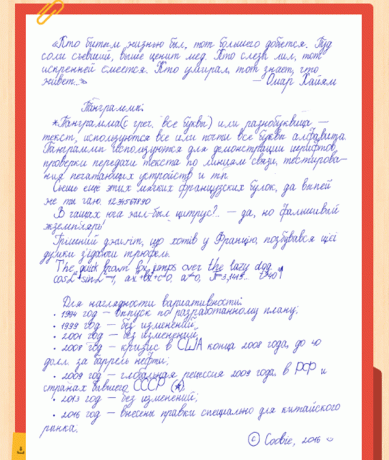 «Кто битым жизнью был, тот большего добьется. Пуд
соли съевший, выше ценит мед. Кто слезы лил, тот
искренней смеется. Кто умирал, тот знает, что
живет.»
— Омар Хайям
Панграммы:
*Панграмма(с греч. 'все буквы') или разнобуквица —
текст, использующий все или почти все буквы алфавита.
Панграммы используются для демонстрации шрифтов,
проверки передачи текста по линиям связи, тестирова-
ния печатающих устройств и т.п.
Съешь еще этих мягких французских булок, да выпей
же ты чаю. 1234567890
В чащах юга жил-был цитрус? — да, но фальшивый
экземпляръ!
Гришний джигіт, що хотів у Францію, позбувався цієї
думки з'їдаючи трюфель.
The quick brown fox jumps over the lazy dog.
Для наглядности вариативности:
• 1994 год — выпуск по разработанному плану;
• 1999 год — без изменений;
• 2001 год — без изменений;
• 2008 год — кризис в США конца 2008 года, до 40
долл. за баррель нефти;
• 2009 год — глобальная рецессия 2009 года, в РФ и
странах бывшего СССР (★);
• 2013 год — без изменений;
• 2016 год — внесены правки специально для китайского
рынка.
© Coolvie, 2016